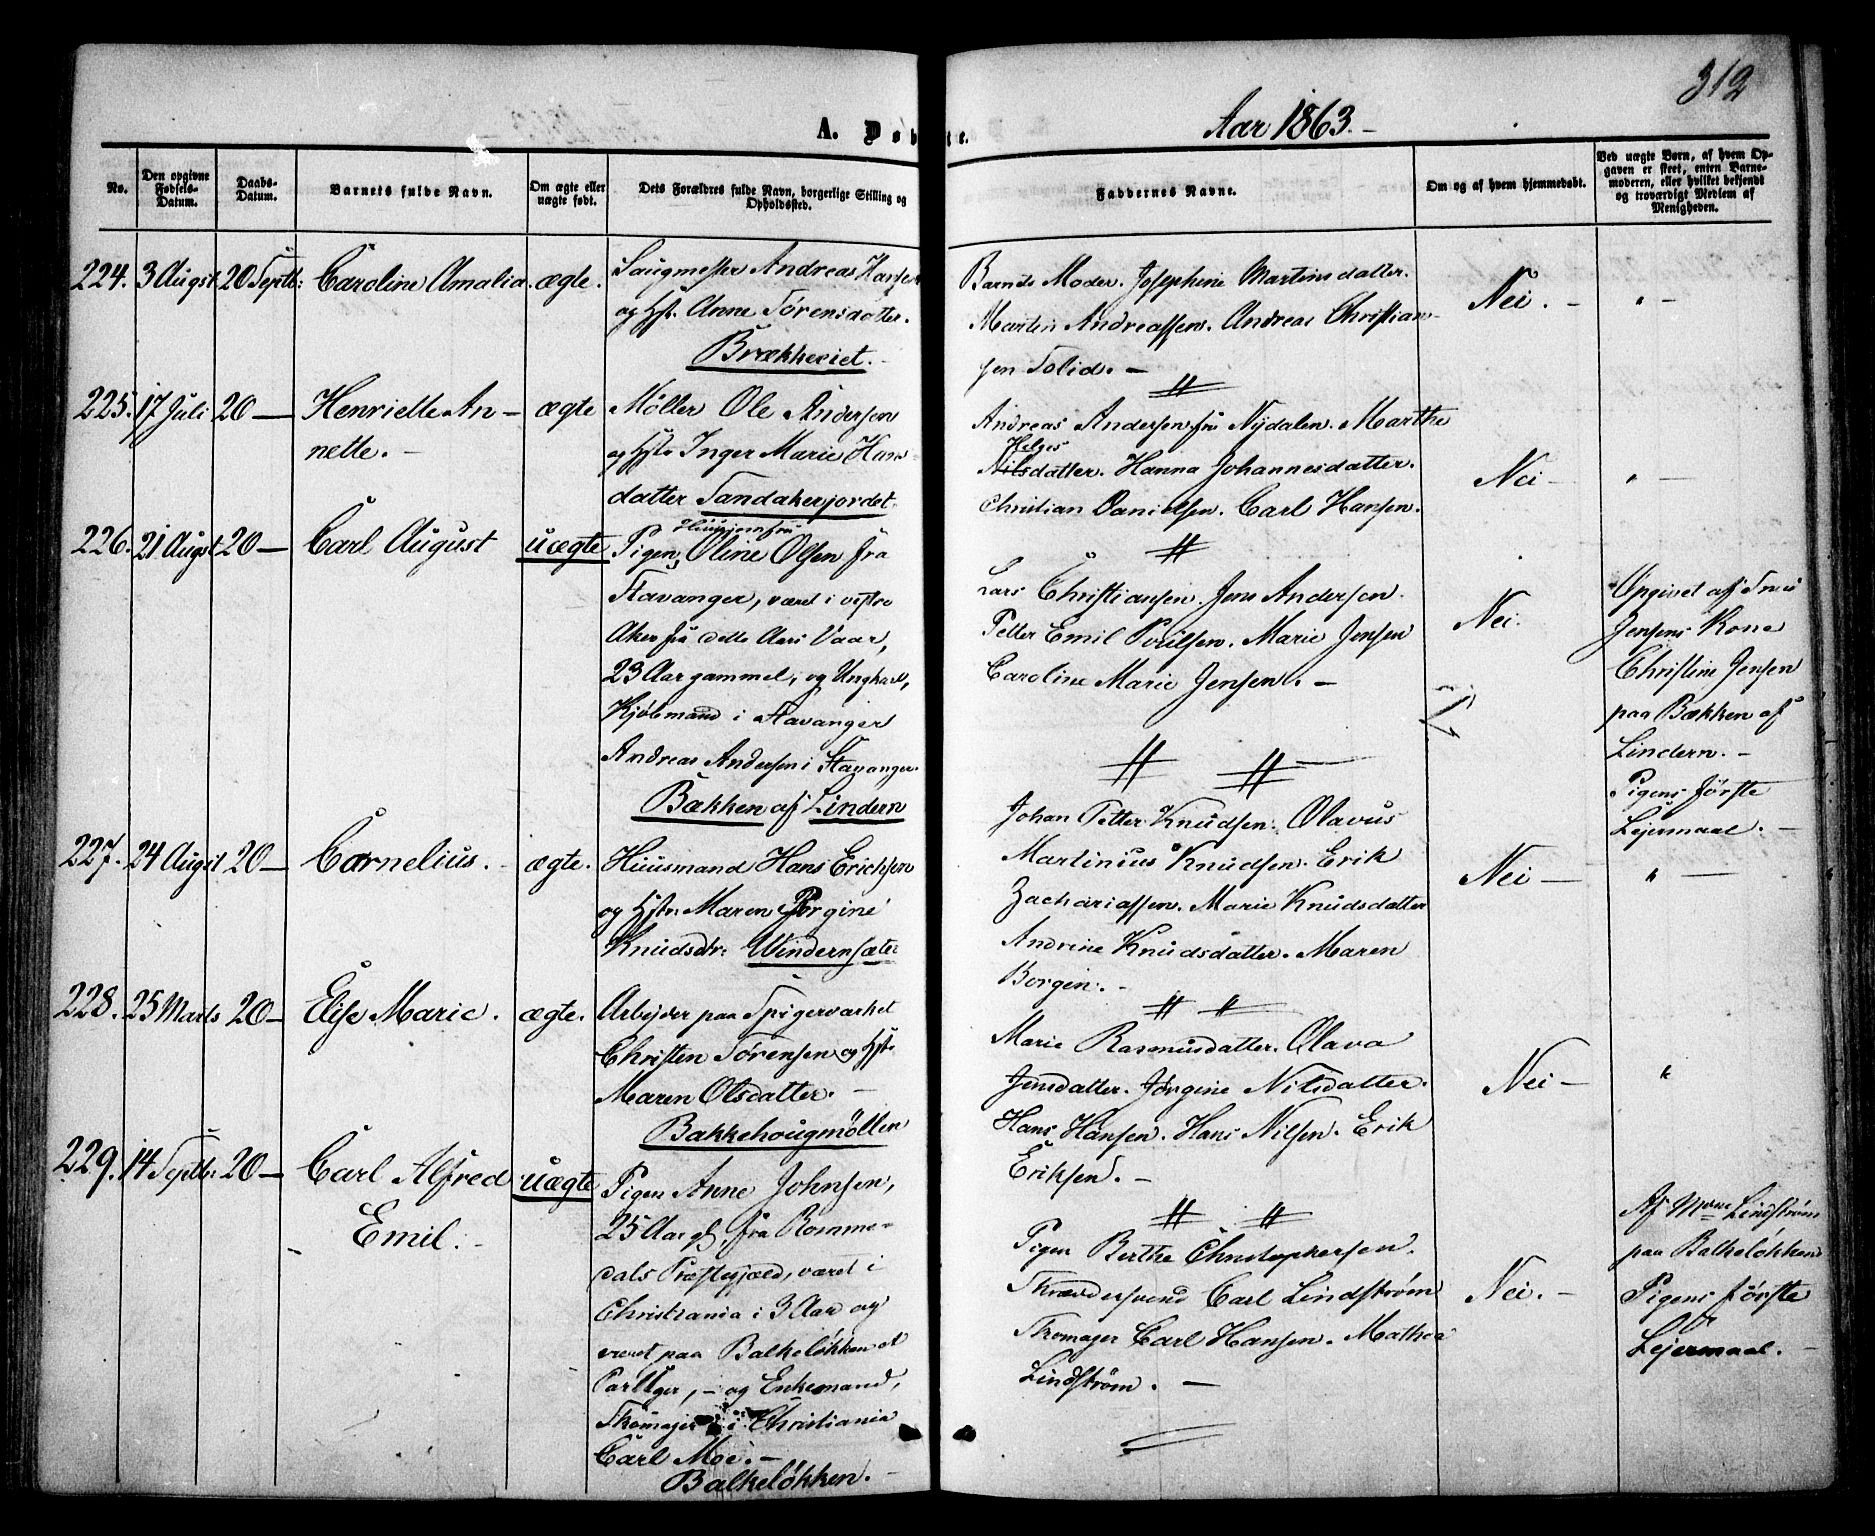 312
A. Døbte.
Aar 1863.-
No.
Den opgivne Fødsels-Datum.
Daabs-Datum.
Barnets fulde Navn.
Om ægte eller uægte født.
Dets Forældres fulde Navn, borgerlige Stilling og Opholdssted.
Faddernes Navne.
Om og af hvem hjemmedøbt.
Ved uægte Børn, af hvem Opgaven er skeet, enten Barnemoderen, eller hvilket bekjendt og troværdigt Medlem af Menigheden.
224. 3 August 20 Septb: Caroline Amalia. ægte.
Saugmester Andreas Hansen
og Hst. Anne Sørensdatter.
Brækkeviet.
Barnets Moder. Josephine Martinsdatter.
Martin Andreassen. Andreas Christian-
sen Solid. -
Nei. -
" -
225. 17 Juli 20 - Henriette An-
nette. -
ægte
Møller Ole Andersen
og Hst. Inger Marie Hans-
datter Sandakerjordet.
Andreas Andersen fra Nydalen. Marthe
Helges
Nilsdatter. Hanna Johannesdatter.
Christian Danielsen. Carl Hansen.
Nei -
" -
226. 21 Augst 20 - Carl August uægte
Pigen, Oline Olsen fra
Stavanger, været i vestre
Aker fra dette Aars Vaar,
23 Aar gammel, og Ungkarl,
Kjøbmand i Stavanger
Andreas Andersen i Stavanger.
Bækken af Lindern
Lars Christiansen. Jens Andersen.
Petter Emil Poulsen. Marie Jensen
Caroline Marie Jensen. -
Nei.
Opgivet af
Jensens Kone
Christine Jensen
paa Bækken af
Lindern. -
Pigens første
Lejermaal. -
227. 24 Augst 20 - Cornelius. ægte.
Huusmand Hans Erichsen
og Hstr. Maren Borgine
Knudsdtr: Windernsæter
Johan Petter Knudsen. Olavus
Martinius Knudsen. Erik
Zachariassen. Marie Knudsdatter
Andrine Knudsdatter. Maren
Borgin. -
Nei -
" -
228. 25 Marts 20 - Elise Marie. ægte.
Arbejder paa Spigerværket
Christen Sørensen og Hst.
Maren Olsdatter. -
Bakkehougmøllen
Marie Rasmusdatter. Olava
Jensdatter. Jørgine Nilsdatter.
Hans Hansen. Hans Nilsen. Erik
Eriksen. -
Nei -
"
229. 14 Septbr: 20 - Carl Alfred
Emil. -
uægte
Pigen Anne Johnsen,
25 Aar gl, fra Romme-
dals Præstegjæld, været i
Christiania i 3 Aar og
været paa Balkeløkken et
Par Uger, - og Enkemand,
Skomager i Christiania
Carl Moe. -
Balkeløkken. -
Pigen Berthe Christophersen.
Skræddersvend Carl Lindstrøm
Skomager Carl Hansen. Mathea
Lindstrøm. -
Nei. -
Af Mme Lindstrøm
paa Balkeløkken
Pigens første
Lejermaal. -